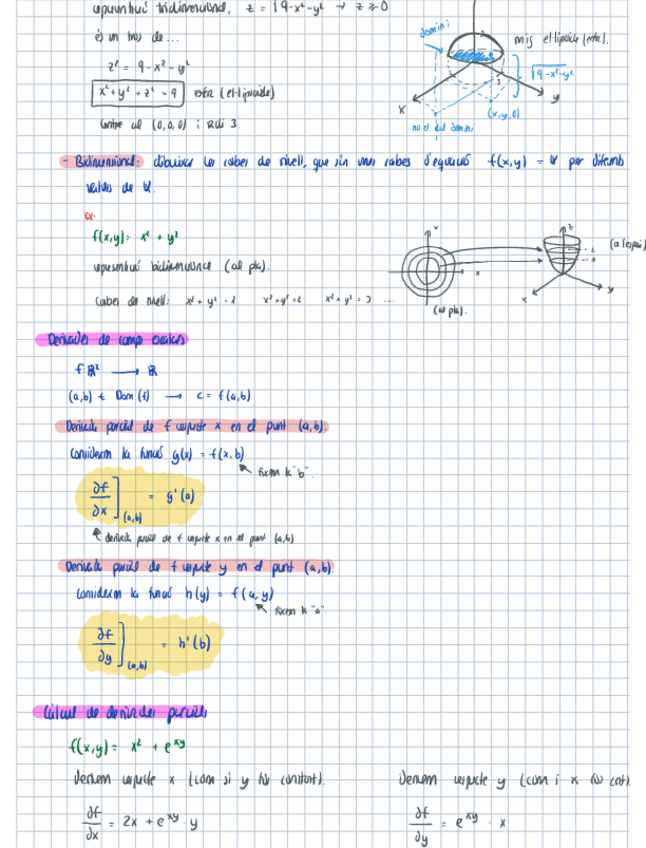 representació tridimensional, z = √9-x²-y² → z ≥ 0
és un tros de ...
z² = 9 - x² - y²
x² + y² + z² = 9 esfera (el·lipsoide)
Centre al (0,0,0) i radi 3.
domini
mig el·lipsoide (esfera).
√9-x²-y²
x
y
(x,y,0)
no és del domini
- Bidimensional: dibuixar les corbes de nivell, que són unes corbes d'equació f(x,y) = k per diferents
valors de k.
ex:
f(x,y) = x² + y²
representació bidimensional (al pla).
Corbes de nivell: x² + y² = 1 x² + y² = 2 x² + y² = 3 ...
x
(al pla).
z
x
y
(a l'espai)
Derivades de camps escalars
f: ℝ² → ℝ
(a,b) ∈ Dom (f) → c = f(a,b)
Derivada parcial de f respecte x en el punt (a,b).
Considerem la funció g(x) = f(x,b)
fixem la "b".
∂f/∂x ](a,b) = g'(a)
derivada parcial de f respecte x en el punt (a,b)
Derivada parcial de f respecte y en el punt (a,b).
Considerem la funció h(y) = f(a,y)
fixem la "a".
∂f/∂y ](a,b) = h'(b)
Càlcul de derivades parcials
f(x,y) = x² + e^xy
Derivem respecte x (com si y fos constant).
∂f/∂x = 2x + e^xy · y
Derivem respecte y (com si x fos cst).
∂f/∂y = e^xy · x